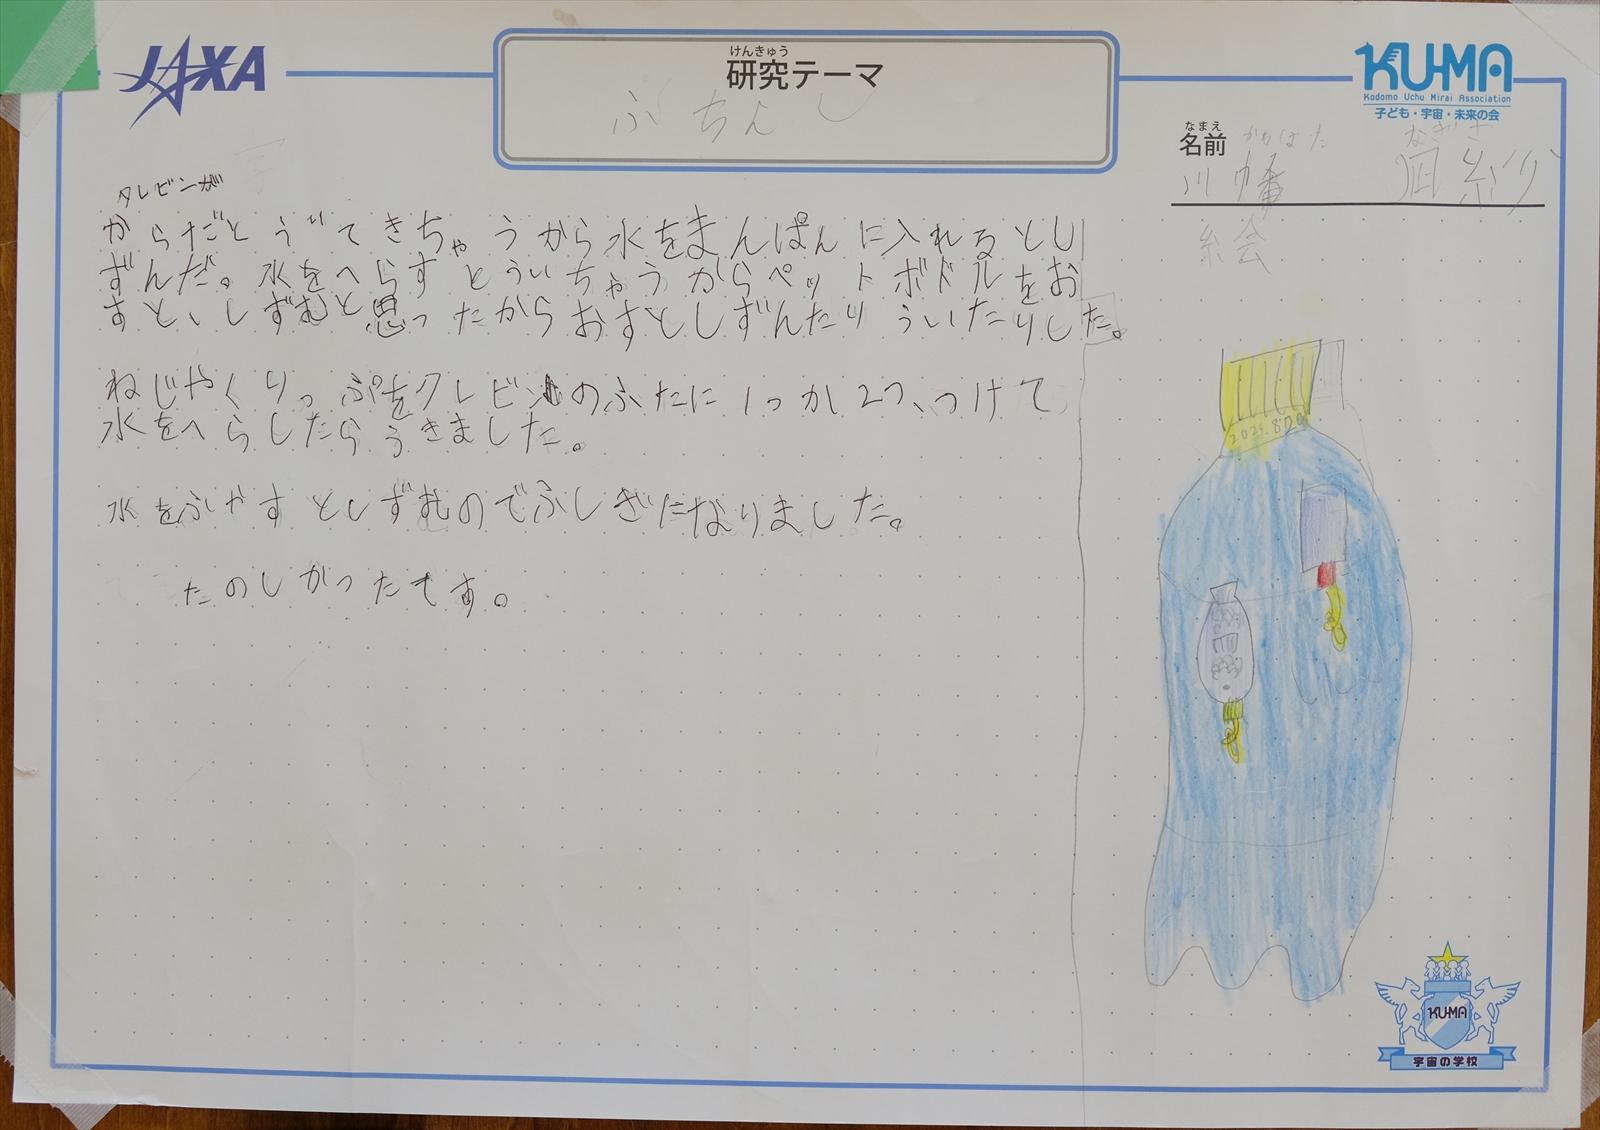 JAXA
けんきゅう
研究テーマ
ふちんし
KU-MA
Kodomo Uchu Mirai Association
子ども・宇宙・未来の会
なまえ
名前
かわはた なぎさ
川幡 凪紗
絵
タレビンが
からだとういてきちゃうから水をまんぱんに入れるとし
ずんだ。水をへらすとういちゃうからペットボドルをお
すと、しずむと思ったからおすとしずんたりういたりした。
ねじやくりっぷをタレビンのふたに1つか2つ、つけて
水をへらしたらうきました。
水をふやすとしずむのでふしぎになりました。
たのしかったです。
2025.8.20
KU-MA
宇宙の学校